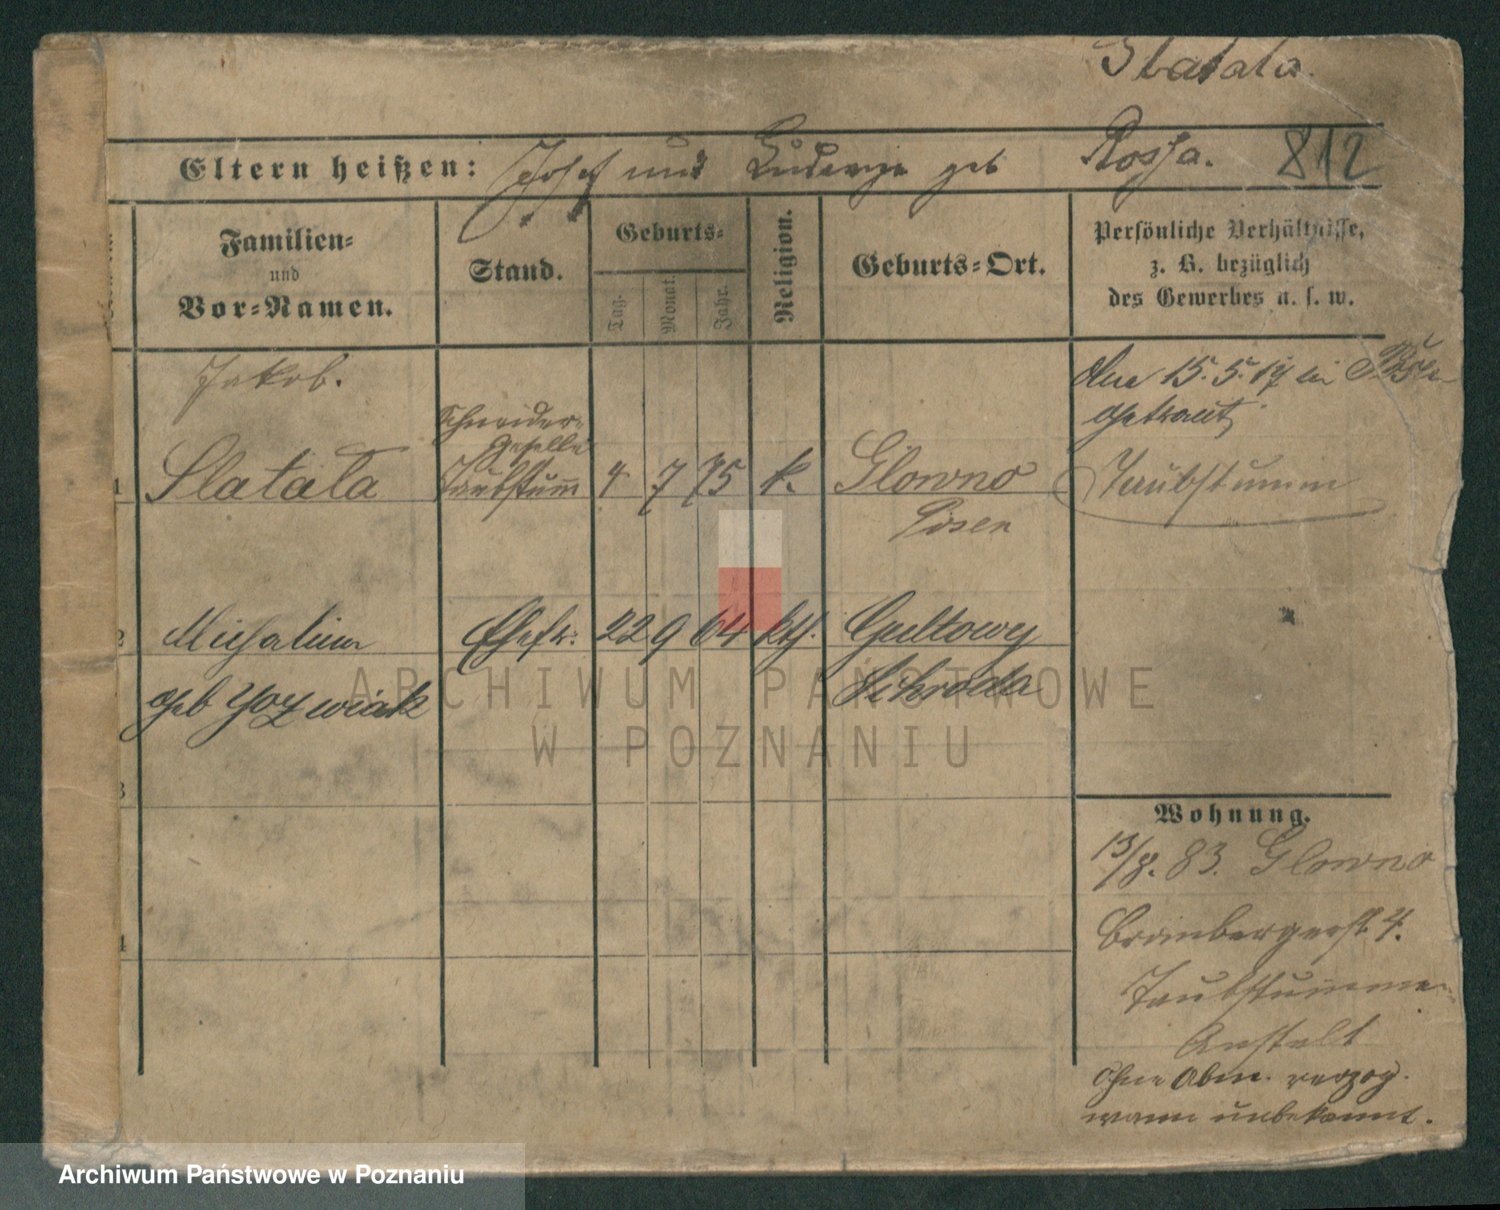 Slatala
Eltern heißen: Josef und Ludwiga geb Rossa. 812
Familien-
und
Vor-Namen.
Stand.
Geburts-
Tag.
Monat.
Jahr.
Religion.
Geburts-Ort.
Persönliche Verhältnisse,
z. B. bezüglich
des Gewerbes u. s. w.
Jakob.
Am 15.5.17 in Posen
getraut
Schneider-
Geselle
1 Slatala Taubstumm 4 7 75 k. Glowno Taubstumm
Posen
2 Michalina Ehefr. 22 9 64 kth. Gultowy
geb Jozwiak Schroda
3
4
Wohnung.
13/8. 83. Glowno
Brombergerst 4.
Taubstummen
Anstalt
Ohne Abm. verzog.
wann unbekannt.
ARCHIWUM PAŃSTWOWE
W POZNANIU
Archiwum Państwowe w Poznaniu